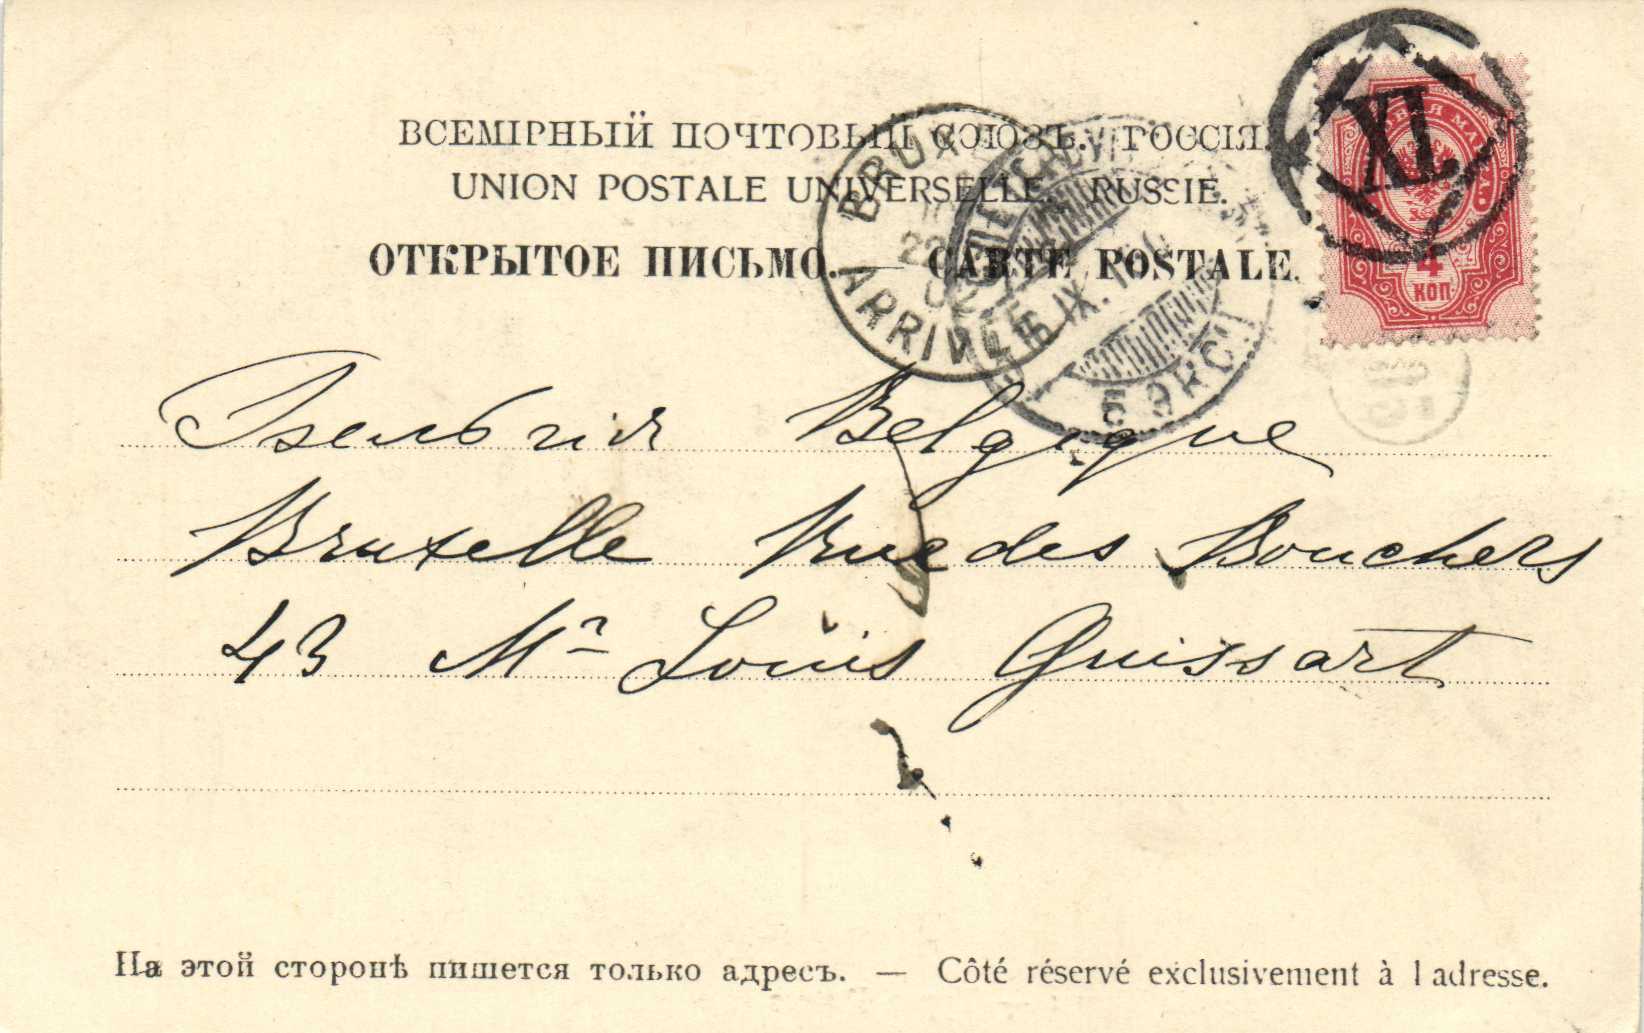 ВСЕМІРНЫЙ ПОЧТОВЫЙ СОЮЗЪ. РОССІЯ.
UNION POSTALE UNIVERSELLE. RUSSIE.
ОТКРЫТОЕ ПИСЬМО. — CARTE POSTALE.
XI.
МАРКА
4
КОП
BRUX
22
ARRIVÉE
IX.
5 ЭКС
Бельгія Belgique
Bruxelle Rue des Bouchers
43 Mr Louis Guissart
На этой сторонѣ пишется только адресъ. — Côté réservé exclusivement à l adresse.